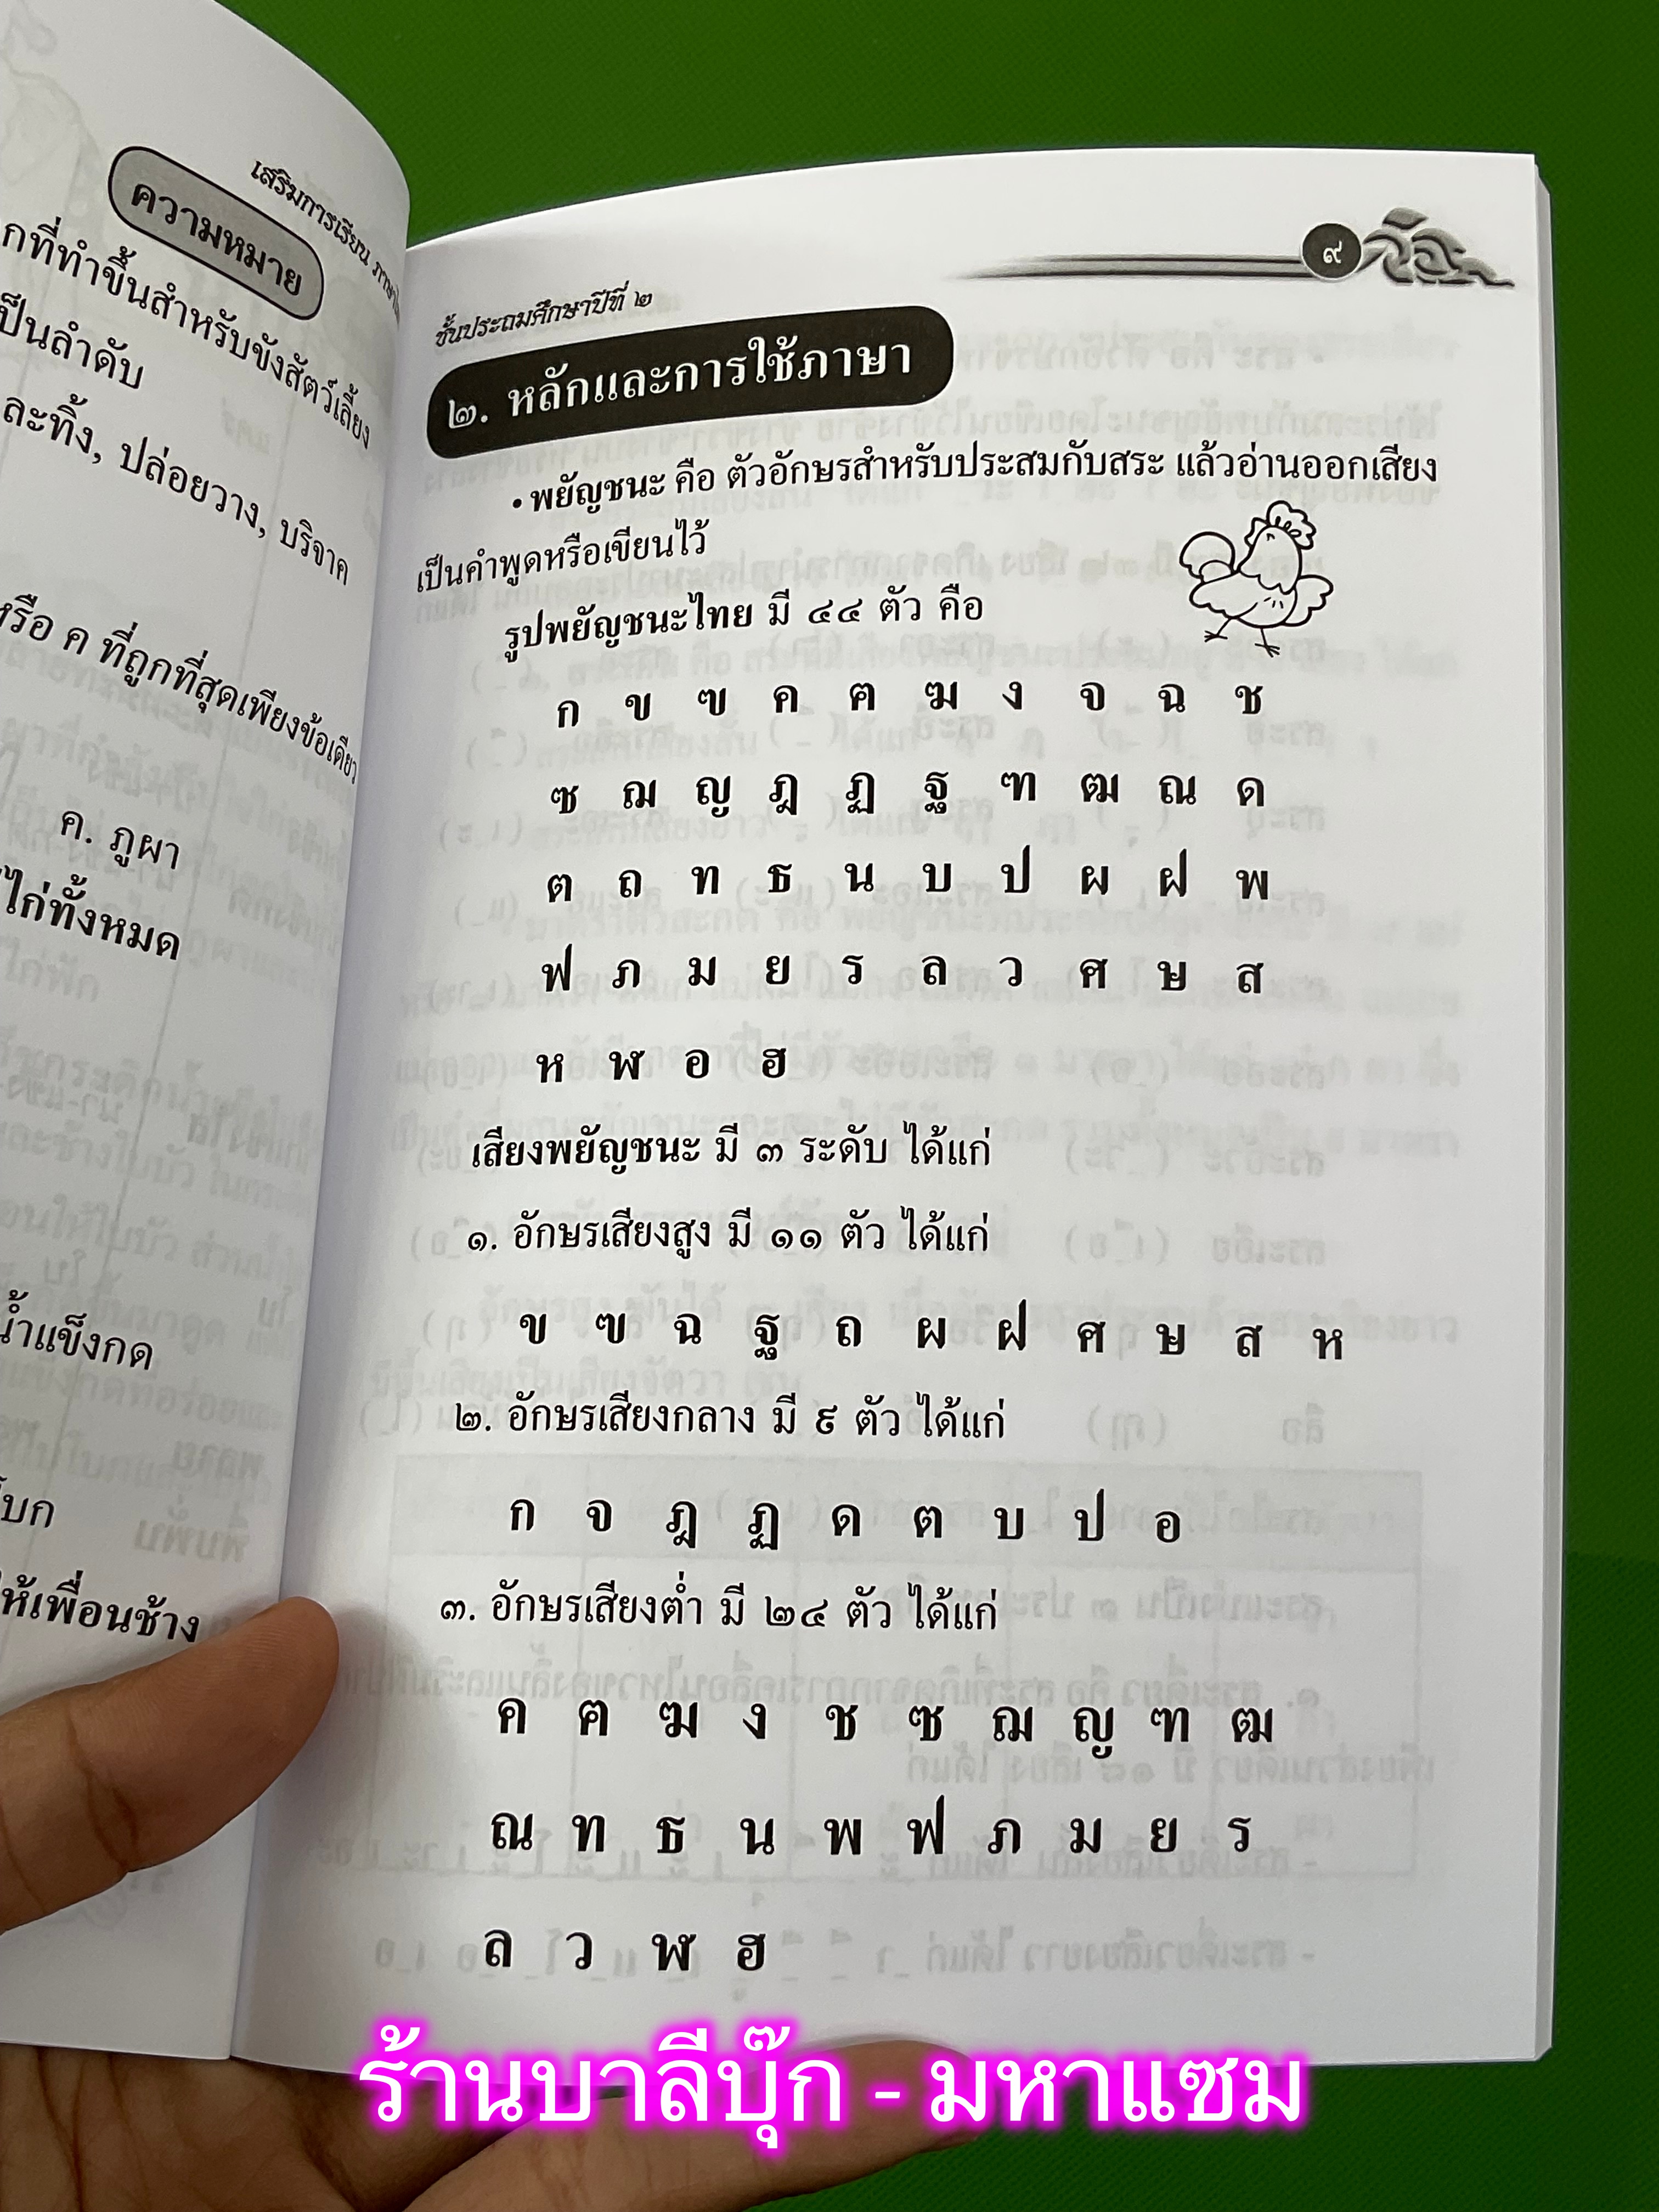 เสริมการเรียน
ความหมาย
กที่ทำขึ้นสำหรับขังสัตว์เลี้ยง
ป็นลำดับ
ละทิ้ง, ปล่อยวาง, บริจาค
หรือ ค ที่ถูกที่สุดเพียงข้อเดียว
ค. ภูผา
ไก่ทั้งหมด
น้ำแข็งกด
บก
ให้เพื่อนช้าง
๙
ชั้นประถมศึกษาปีที่ ๒
๒. หลักและการใช้ภาษา
• พยัญชนะ คือ ตัวอักษรสำหรับประสมกับสระ แล้วอ่านออกเสียง
เป็นคำพูดหรือเขียนไว้
รูปพยัญชนะไทย มี ๔๔ ตัว คือ
ก ข ฃ ค ฅ ฆ ง จ ฉ ช
ซ ฌ ญ ฎ ฏ ฐ ฑ ฒ ณ ด
ต ถ ท ธ น บ ป ผ ฝ พ
ฟ ภ ม ย ร ล ว ศ ษ ส
ห ฬ อ ฮ
เสียงพยัญชนะ มี ๓ ระดับ ได้แก่
๑. อักษรเสียงสูง มี ๑๑ ตัว ได้แก่
ข ฃ ฉ ฐ ถ ผ ฝ ศ ษ ส ห
๒. อักษรเสียงกลาง มี ๙ ตัว ได้แก่
ก จ ฎ ฏ ด ต บ ป อ
๓. อักษรเสียงต่ำ มี ๒๔ ตัว ได้แก่
ค ฅ ฆ ง ช ซ ฌ ญ ฑ ฒ
ณ ท ธ น พ ฟ ภ ม ย ร
ล ว ฬ ฮ
ร้านบาลีบุ๊ก - มหาแซม